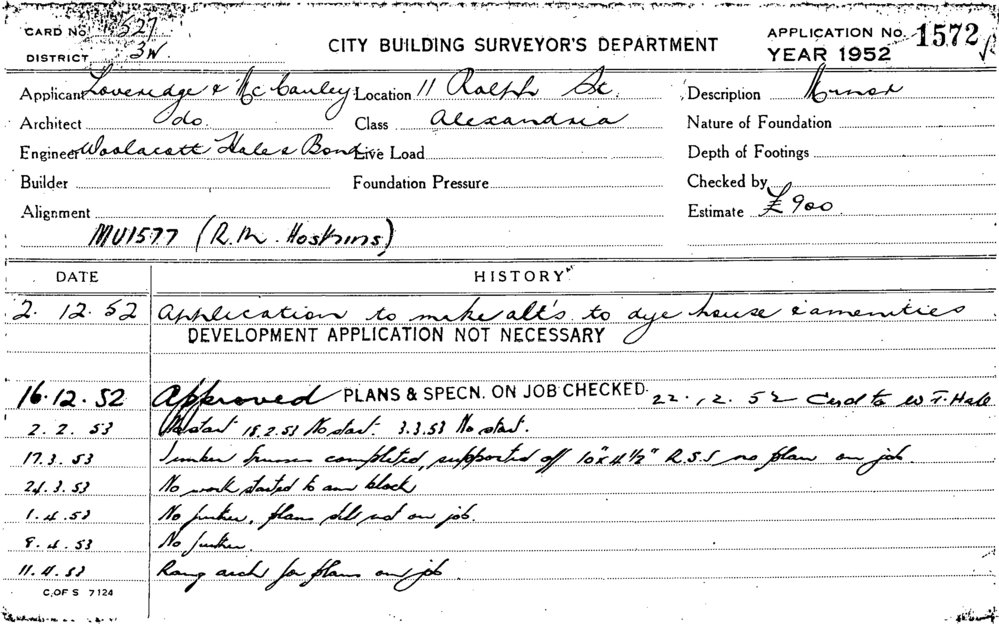 CARD No. 1527
DISTRICT 3W.
CITY BUILDING SURVEYOR'S DEPARTMENT
APPLICATION No. 1572
YEAR 1952
Applicant Loveridge & McCauley Location 11 Ralph St. Description Minor
Architect do. Class Alexandria Nature of Foundation
Engineer Woolacott Hale & Bond Live Load Depth of Footings
Builder Foundation Pressure Checked by
Alignment Estimate £900
MU1577 (R.M. Hoskins)
DATE HISTORY
2. 12. 52 Application to make alt's to dye house & amenities
DEVELOPMENT APPLICATION NOT NECESSARY
16.12.52 Approved PLANS & SPECN. ON JOB CHECKED. 22.12.52 Card to W.T. Hall
2.2.53 No start 18.2.53 No start. 3.3.53 No start.
17.3.53 Timber trusses completed, supported off 10"x4½" R.S.J no plan on job.
24.3.53 No work started to am block
1.4.53 No further, plans still not on job.
8.4.53 No further.
11.4.53 Rang arch for plans on job
C. OF S 7124